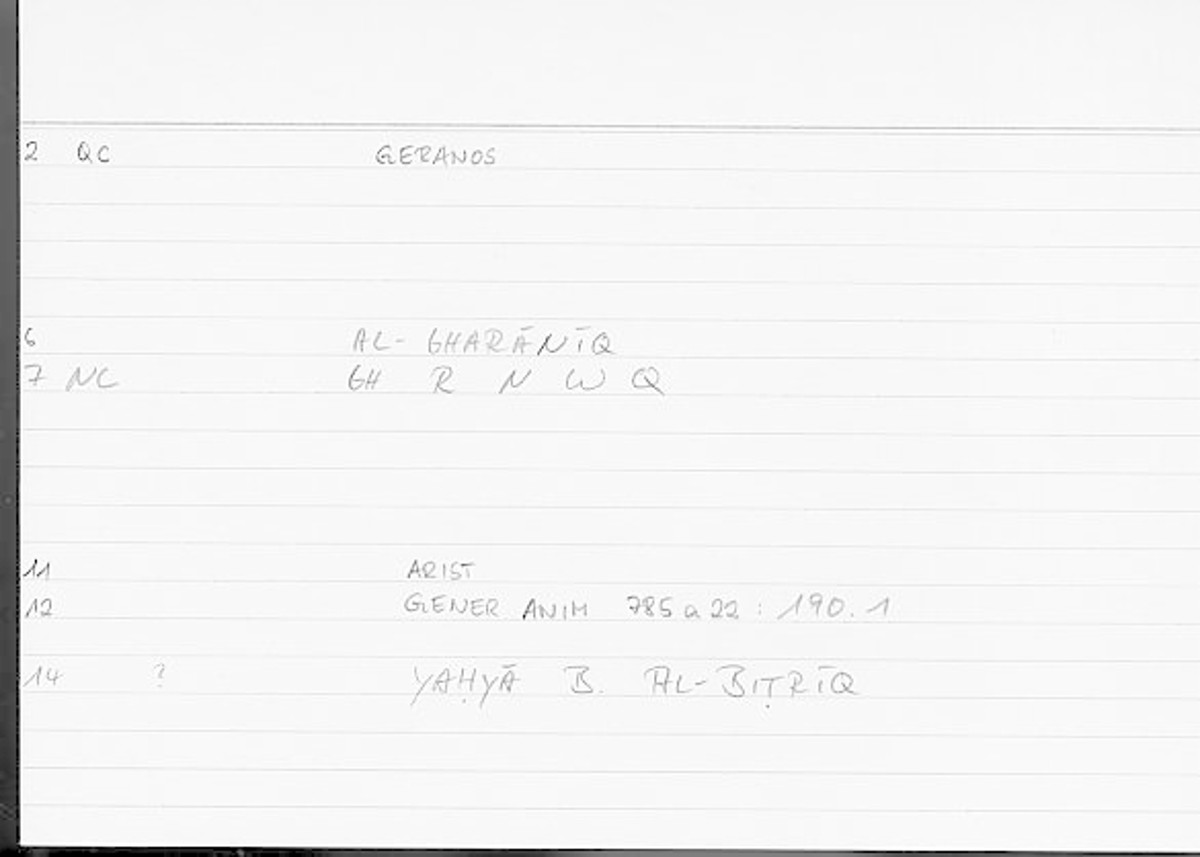 2 QC GERANOS
6 AL-GHARĀNĪQ
7 NC GH R N W Q
11 ARIST
12 GENER ANIM 785 a 22 : 190.1
14 ? YAḤYĀ B. AL-BIṬRĪQ